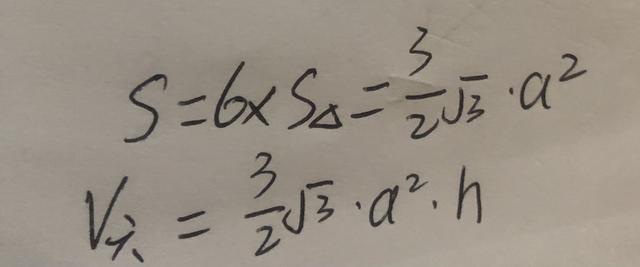 S=6×S△=3/2√3·a²
V六=3/2√3·a²·h